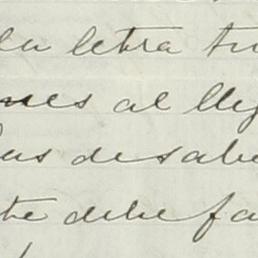 la letra tu
mes al lleg
us de sabe
te debe fa